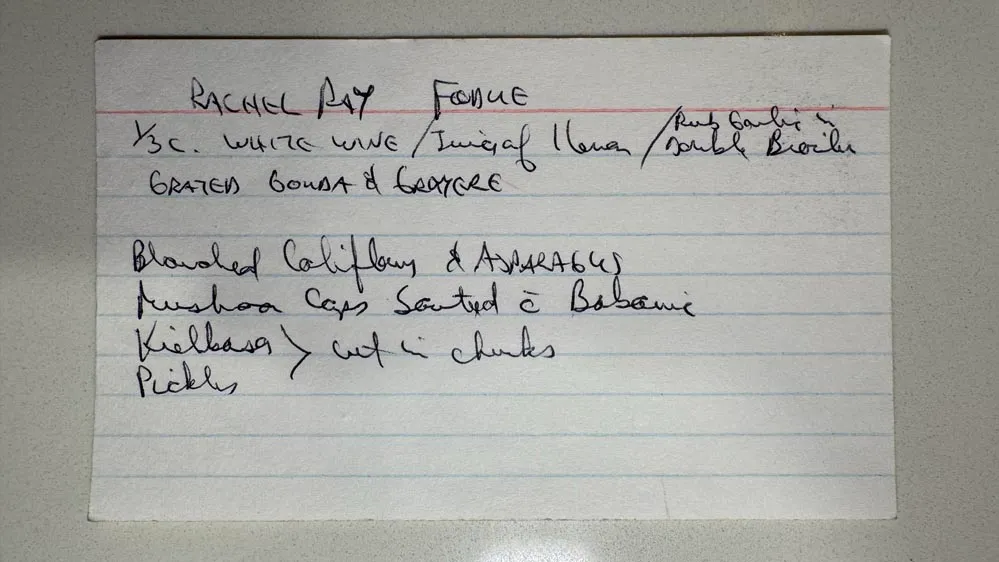 RACHEL RAY FODUE
1/3 C. WHITE WINE / Juice of 1 lemon / Rub Garlic in Double Broiler
GRATED GOUDA & GRUYERE
Blanched Califlowy & ASPARAGUS
Mushroom Caps Sauted c̄ Balsamic
Kielbasa > cut in chunks
Pickles